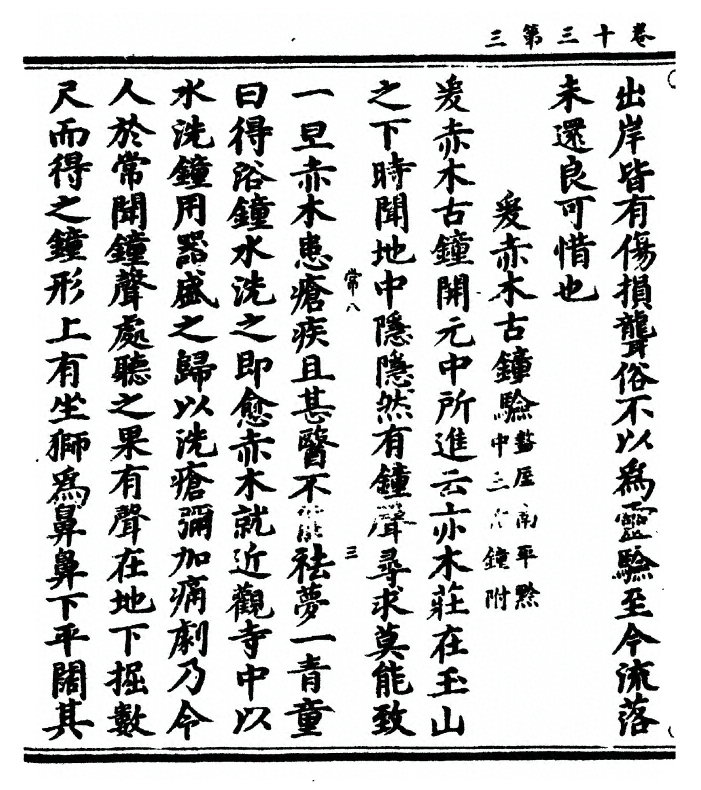 卷十三第三
出岸皆有傷損聾俗不以為靈驗至今流落
未還良可惜也
爰赤木古鐘驗
盩厔南平黔
中三
鐘附
爰赤木古鐘開元中所進云赤木莊在玉山
之下時聞地中隱隱然有鐘聲尋求莫能致
常八
三
一旦赤木患瘡疾且甚醫不能祛夢一青童
曰得浴鐘水洗之即愈赤木就近觀寺中以
水洗鐘用器盛之歸以洗瘡彌加痛劇乃令
人於常聞鐘聲處聽之果有聲在地下掘數
尺而得之鐘形上有坐獅為鼻鼻下平闊其